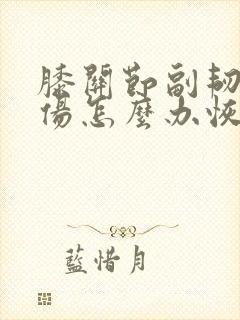 膝關節副韌
傷怎麼办恢
藍惜月